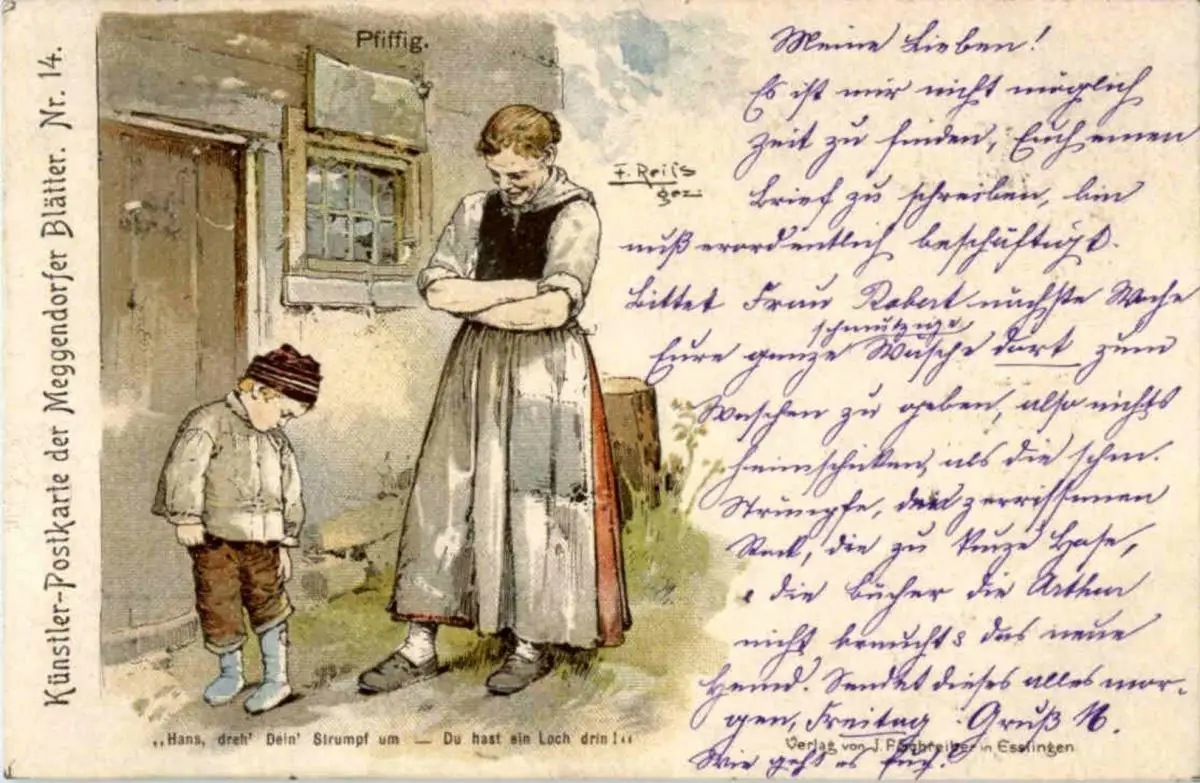 Künstler-Postkarte der Meggendorfer Blätter. Nr. 14.
Pfiffig.
F. Reiss
gez.
„Hans, dreh' Dein' Strumpf um — Du hast ein Loch drin!“
Meine Lieben!
Es ist mir nicht möglich
Zeit zu finden, Euch einen
Brief zu schreiben, bin
außerordentlich beschäftigt.
Bittet Frau Robert nächste Woche
schmutzige
Eure ganze Wäsche dort zum
Waschen zu geben, also nichts
heimschicken, als die schm.
Strümpfe, den zerrissenen
Rock, die zu kurze Hose,
die Bücher die Arthur
nicht braucht & das neue
Hemd. Sendet dieses alles mor-
gen, Freitag. Gruß
Wie geht es Euch?
Verlag von J. F. Schreiber in Esslingen